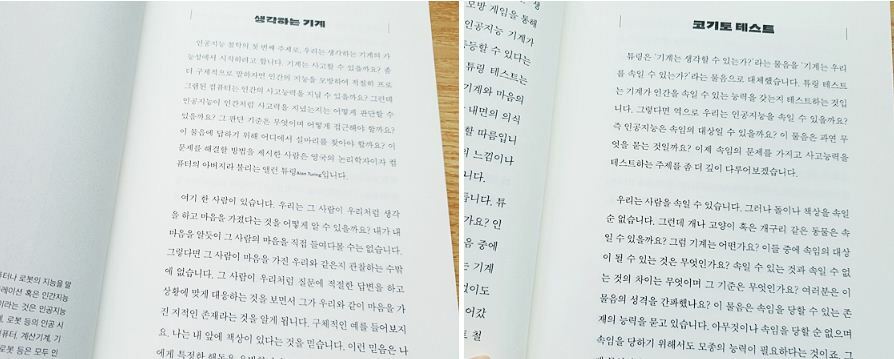 생각하는 기계
인공지능 철학의 첫 번째 주제로, 우리는 생각하는 기계의 가
능성에서 시작하려고 합니다. 기계는 사고할 수 있을까요? 좀
더 구체적으로 말하자면 인간의 지능을 모방하여 적절히 프로
그램된 컴퓨터는 인간의 사고능력을 지닐 수 있을까요? 그런데
인공지능이 인간처럼 사고력을 지녔는지는 어떻게 판단할 수
있을까요? 그 판단 기준은 무엇이며 어떻게 접근해야 할까요?
이 물음에 답하기 위해 어디에서 실마리를 찾아야 할까요? 이
문제를 해결할 방법을 제시한 사람은 영국의 논리학자이자 컴
퓨터의 아버지라 불리는 앨런 튜링Alan Turing입니다.
여기 한 사람이 있습니다. 우리는 그 사람이 우리처럼 생각
을 하고 마음을 가졌다는 것을 어떻게 알 수 있을까요? 내가 내
마음을 알듯이 그 사람의 마음을 직접 들여다볼 수는 없습니다.
그렇다면 그 사람이 마음을 가진 우리와 같은지 관찰하는 수밖
에 없습니다. 그 사람이 우리처럼 질문에 적절한 답변을 하고
상황에 맞게 대응하는 것을 보면서 그가 우리와 같이 마음을 가
진 지적인 존재라는 것을 알게 됩니다. 구체적인 예를 들어보지
요. 나는 내 앞에 책상이 있다는 것을 믿습니다. 이런 믿음은 나
에게 특정한 행동을
퓨터나 로봇의 지능을 말
레이션 혹은 인간지능
이라는 것은 인공
, 로봇 등의 인공 시
퓨터, 계산기계, 기
로봇 등은 모두 인
생
모방 게임을 통해
인공지능 기계가
등할 수 있다는
튜링 테스트는
기계와 마음의
내면의 의식
할 따름입니
의 느낌이나
니다.
듭니다. 튜
가요? 인
음 중에
는 기계
없이도
어갔
트 철
코기토 테스트
튜링은 '기계는 생각할 수 있는가?'라는 물음을 '기계는 우리
를 속일 수 있는가?'라는 물음으로 대체했습니다. 튜링 테스트
는 기계가 인간을 속일 수 있는 능력을 갖는지 테스트하는 것입
니다. 그렇다면 역으로 우리는 인공지능을 속일 수 있을까요?
즉 인공지능은 속임의 대상일 수 있을까요? 이 물음은 과연 무
엇을 묻는 것일까요? 이제 속임의 문제를 가지고 사고능력을
테스트하는 주제를 좀 더 깊이 다루어보겠습니다.
우리는 사람을 속일 수 있습니다. 그러나 돌이나 책상을 속일
순 없습니다. 그런데 개나 고양이 혹은 개구리 같은 동물은 속
일 수 있을까요? 그럼 기계는 어떤가요? 이들 중에 속임의 대상
이 될 수 있는 것은 무엇인가요? 속일 수 있는 것과 속일 수 없
는 것의 차이는 무엇이며 그 기준은 무엇인가요? 여러분은 이
물음의 성격을 간파했나요? 이 물음은 속임을 당할 수 있는 존
재의 능력을 묻고 있습니다. 아무것이나 속임을 당할 순 없으며
속임을 당하기 위해서도 모종의 능력이 필요하다는 것이죠. 그